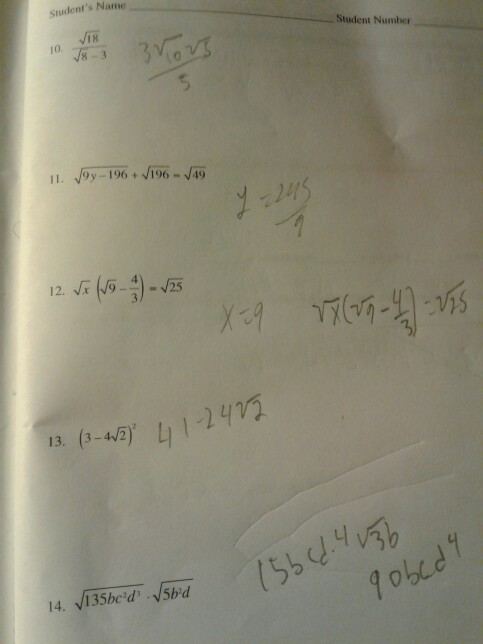 Student's Name
Student Number
10. √18 / (√8 − 3) 3√10√3 / 5
11. √(9y − 196) + √196 = √49 y = 245 / 9
12. √x (√9 − 4/3) = √25 x = 9 √x(√9 − 4/3) = √25
13. (3 − 4√2)² 41 - 24√2
15bcd·4√3b
90bcd⁴
14. √(135bc²d³) · √(5b²d)